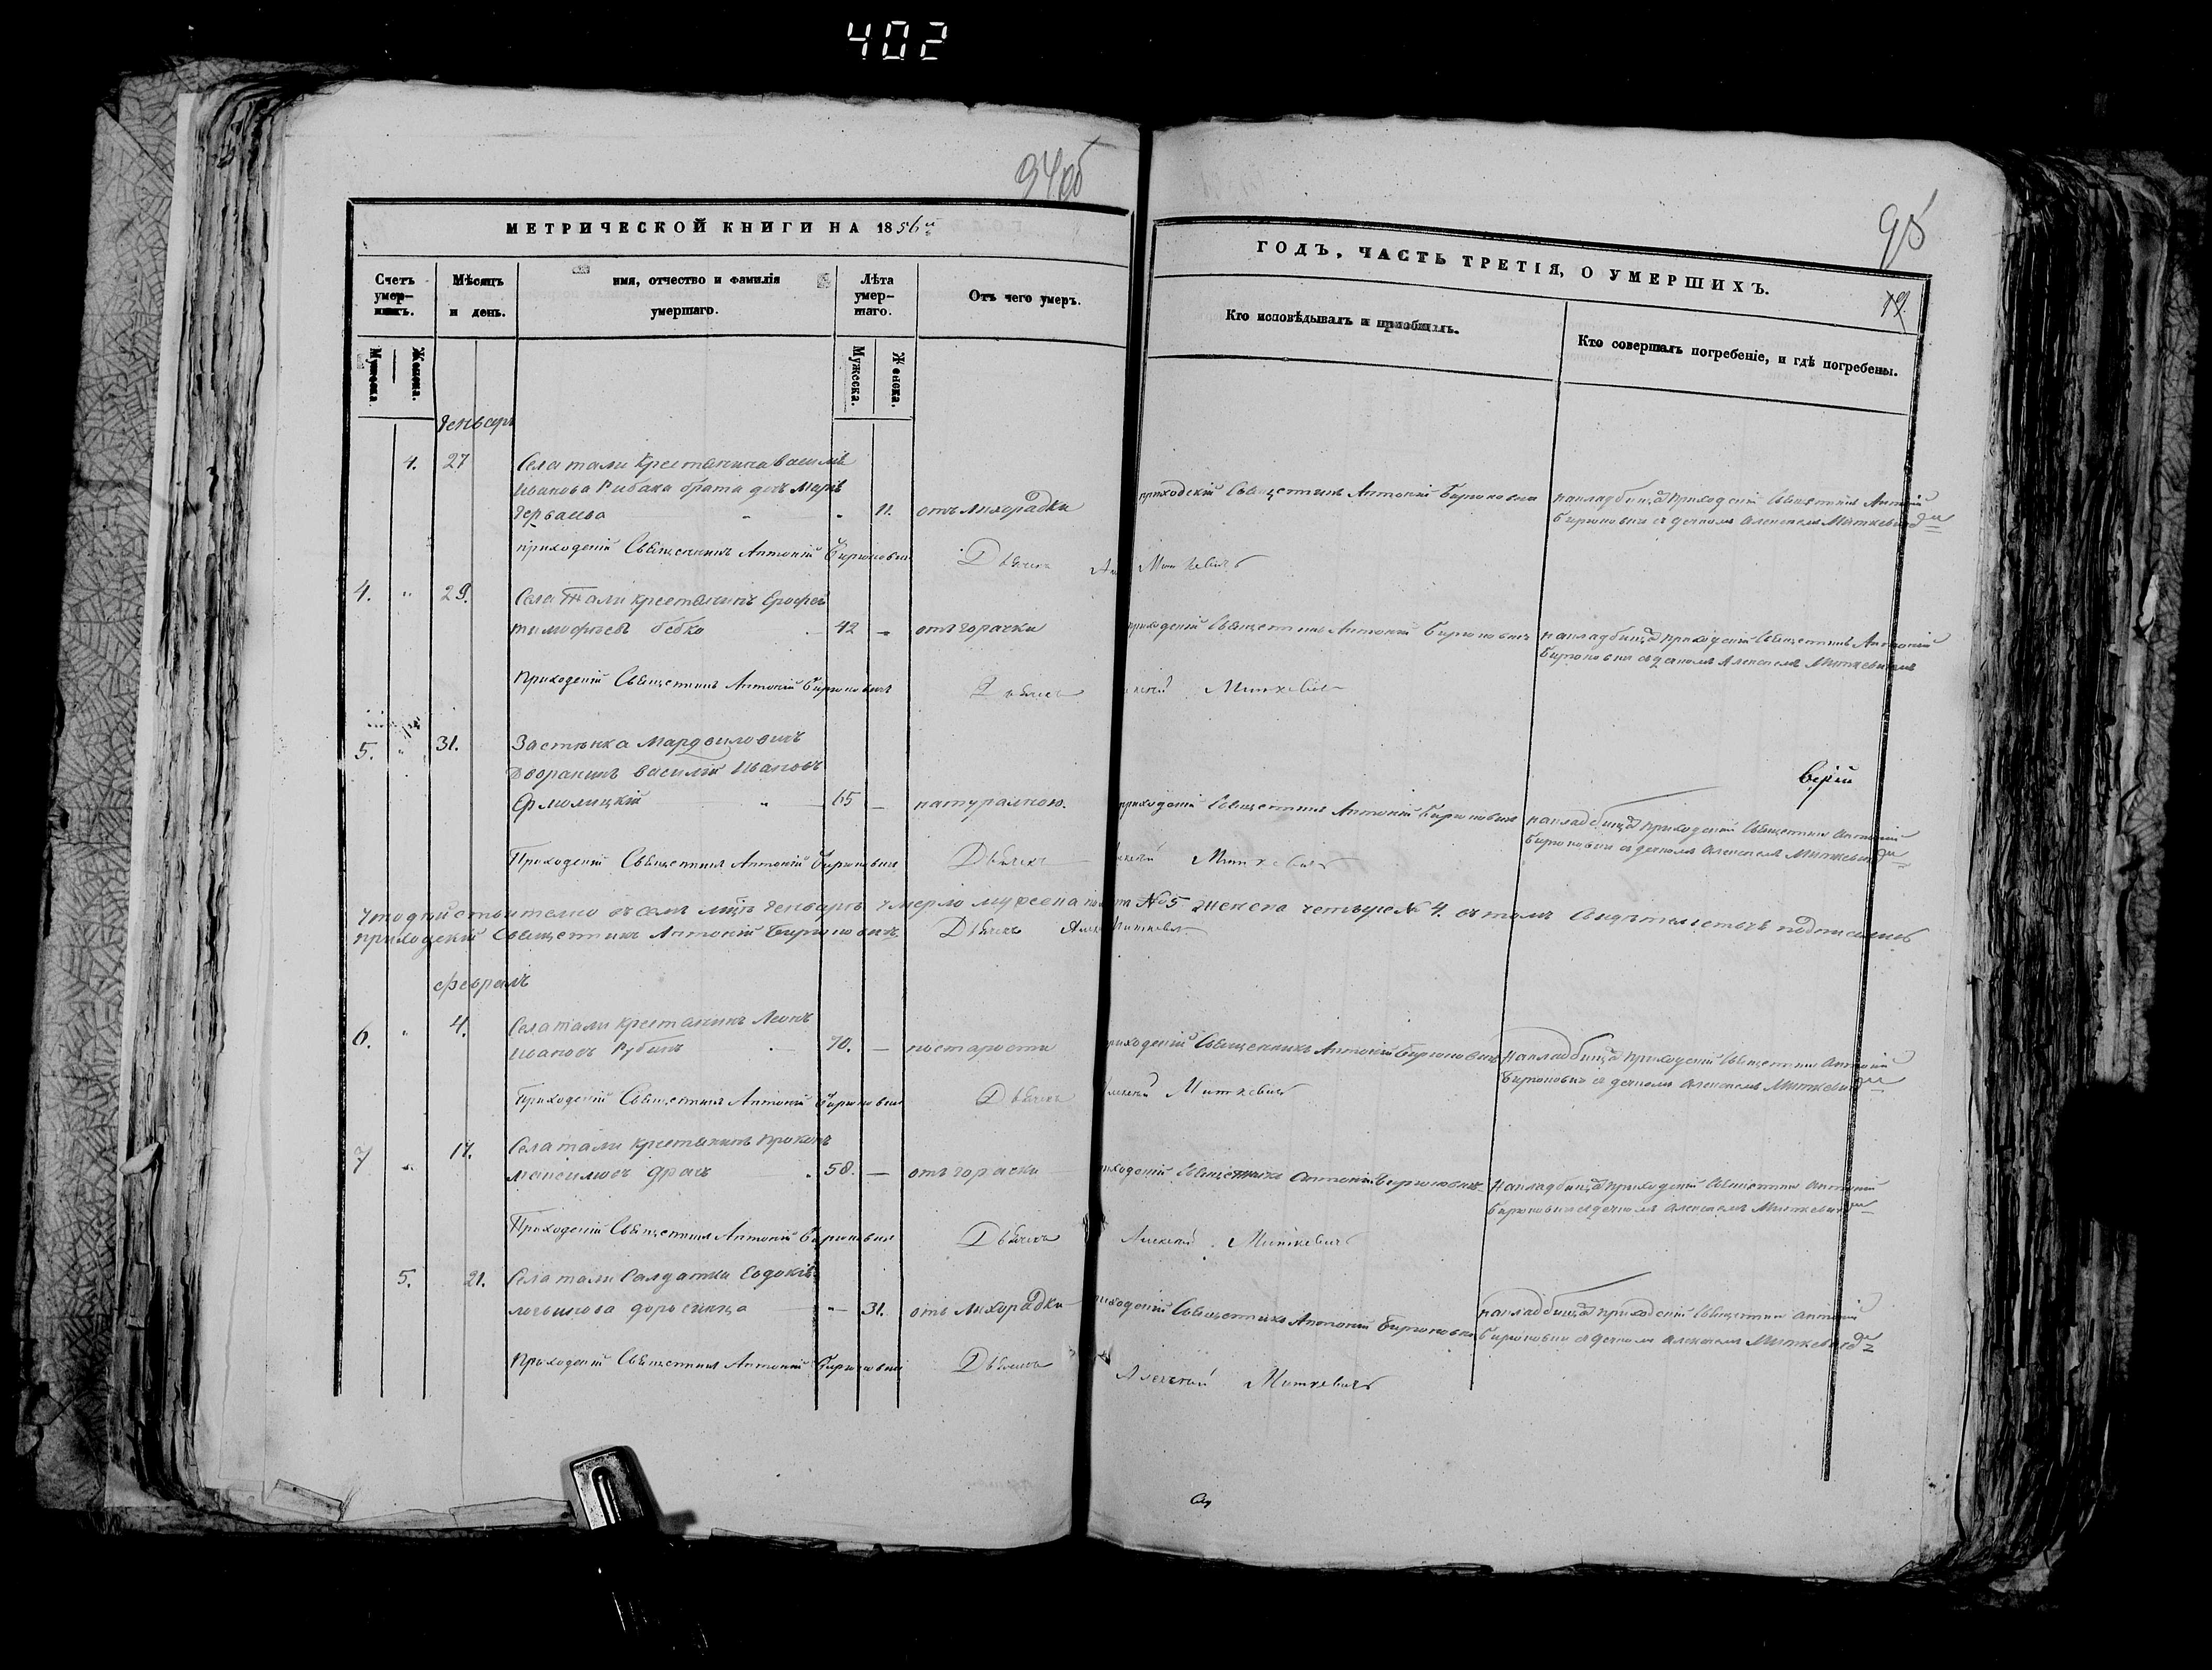 402
94об
95
МЕТРИЧЕСКОЙ КНИГИ НА 1856й
ГОДЪ, ЧАСТЬ ТРЕТІЯ, О УМЕРШИХЪ.
19.
Счетъ умер-шихъ.
Мѣсяцъ и день.
имя, отчество и фамилія умершаго.
Лѣта умер-шаго.
Отъ чего умеръ.
Кто исповѣдывалъ и приобщалъ.
Кто совершалъ погребеніе, и гдѣ погребены.
Мужеска.
Женска.
Мужеска.
Женска.
Генваръ
4. 27 Села тали Крестянина Василія
Иванова Рибака брата дочъ Марія
11. отъ лихорадки приходскій Священникъ Антоній Бирюковичъ
накладбищѣ приходскій Священникъ Антоній
Бирюковичъ с дячкомъ Алексѣемъ Миткевичемъ
приходскій Священникъ Антоній Бирюковичъ Дьячекъ Миткевичъ
4. " 29. Села Тали крестянинъ Ерофей
тимофѣевъ бобко 42 - отъ горачки приходскій Священникъ Антоній Бирюковичъ
накладбищѣ приходскій Священникъ Антоній
Бирюковичъ с дячкомъ Алексѣемъ Миткевичемъ
Приходскій Священникъ Антоній Бирюковичъ Дьячекъ Миткевичъ
5. " 31. Застѣнка Мардвиловичъ
Дворанинъ василій Ивановъ
" 65 — натуралною. приходскій Священникъ Антоній Бирюковичъ
накладбищѣ приходскій Священникъ Антоній
Бирюковичъ с дячкомъ Алексѣемъ Миткевичемъ
Приходскій Священникъ Антоній Бирюковичъ Дьячекъ Миткевичъ
Что дѣйствително въ семъ мцѣ Генварѣ умерло мужеска полта № 5 женска четыре № 4. въ томъ Свидѣтелствѣ подписались
приходскій Священникъ Антоній Бирюковичъ Дьячекъ Миткевичъ
февралъ
6. " 4. Села тали крестянинъ Леонъ
Ивановъ Рубинъ 70. — по старости приходскій Священникъ Антоній Бирюковичъ
Накладбищѣ приходскій Священникъ Антоній
Бирюковичъ с дячкомъ Алексѣемъ Миткевичемъ
Приходскій Священникъ Антоній Бирюковичъ Дьячекъ Миткевичъ
7 " 17. Села тали крестянинъ Прокопъ
Максимовъ Драчъ 58. — отъ горачки приходскій Священникъ Антоній Бирюковичъ
Накладбищѣ приходскій Священникъ Антоній
Бирюковичъ с дячкомъ Алексѣемъ Миткевичемъ
Приходскій Священникъ Антоній Бирюковичъ Дьячекъ Алексѣй Миткевичъ
5. 21. Села тали Салдатка Евдокія
— 31. отъ лихорадки приходскій Священникъ Антоній Бирюковичъ
накладбищѣ приходскій Священникъ Антоній
Бирюковичъ с дячкомъ Алексѣемъ Миткевичемъ
Приходскій Священникъ Антоній Бирюковичъ Дьячекъ Алексѣй Миткевичъ